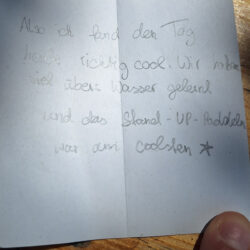 Also ich fand den Tag
heute richtig cool. Wir haben
viel über Wasser gelernt
und das Stand-UP-Paddeln
war am coolsten